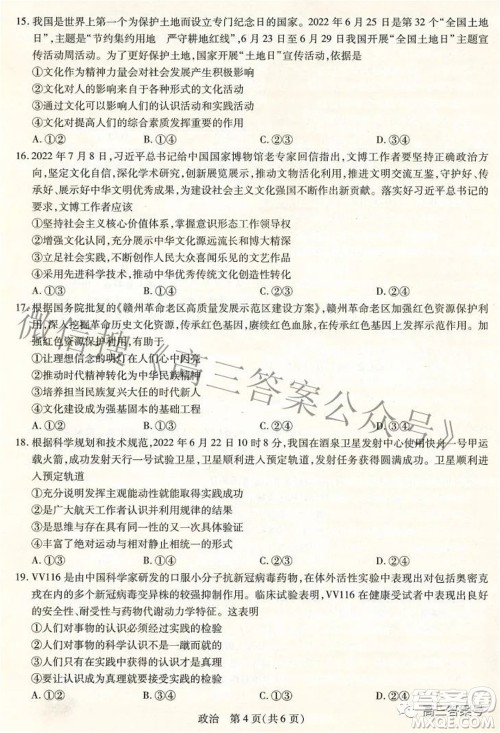 15. 我国是世界上第一个为保护土地而设立专门纪念日的国家。2022 年 6 月 25 日是第 32 个“全国土地
日”,主题是“节约集约用地　严守耕地红线”,6 月 23 日至 6 月 29 日我国开展“全国土地日”主题宣
传活动周活动。为了更好保护土地,国家开展“全国土地日”活动,依据是
①文化作为精神力量会对社会发展产生积极影响
②文化对人的影响来自于各种形式的文化活动
③文化影响人们的认识活动和实践活动
④文化对提高人们的综合素质发挥重要的作用
A. ①② B. ①④ C. ②③ D. ③④
16. 2022 年 7 月 8 日,习近平总书记给中国国家博物馆老专家回信指出,文博工作者要坚持正确政治方
向,坚定文化自信,深化学术研究,创新展览展示,推动文物活化利用,推进文明交流互鉴,守护好、传
承好、展示好中华文明优秀成果,为建设社会主义文化强国不断作出新贡献。落实好习近平总书记
的要求,文博工作者应该
①坚持社会主义核心价值体系,掌握意识形态工作领导权
②增强文化认同,充分展示中华文化源远流长和博大精深
③立足社会实践,不断创新人民大众喜闻乐见的文艺作品
④采用先进科学技术,推动中华优秀传统文化的保护传承
A. ①② B. ①③ C. ②④ D. ③④
17. 根据国务院批复的《赣州革命老区高质量发展示范区建设方案》,赣州革命老区加强红色资源保护利
用,深入挖掘革命历史文化资源,传承红色基因,赓续红色血脉,有效发挥示范引领作用。加
强红色资源保护利用,有助于
①让理想信念的明灯在人们心中闪亮
②推动时代精神转化为中华民族精神
③培养担当民族复兴大任的时代新人
④文化建设成为强基固本的基础工程
A. ①② B. ①③ C. ②④ D. ③④
18. 根据科学规划和技术规范,2022 年 6 月 22 日 10 时 8 分,我国在酒泉卫星发射中心使用快舟一号甲运
载火箭,成功发射天行一号试验卫星,卫星顺利进入预定轨道,发射任务获得圆满成功。卫星顺利进
入预定轨道
①说明发挥主观能动性就能实现目标
②是广大航天工作者认识并利用规律的结果
③是思维与存在具有同一性的又一次具体验证
④丰富并推翻了原有的客观真理性认识
A. ①② B. ①④ C. ②③ D. ③④
19. VV116 是由中国科学家研发的口服小分子抗新冠病毒药物,在体外活性实验中表现出对包括奥密克
戎在内的多个新冠病毒变异株的较强抑制作用。临床试验表明,VV116 在健康受试者中表现出较好
的安全性、耐受性与药物代谢动力学特征。这表明
①人们对事物的认识必须受实践的检验
②人们对事物的认识会受到实践的检验
③人们正确的认识来源于成功的实践
④人们往往有目的地将认识回归实践
A. ①② B. ①③ C. ②④ D. ③④
政治　第 4 页(共 6 页)
微信搜《高三答案公众号》
高三答案号